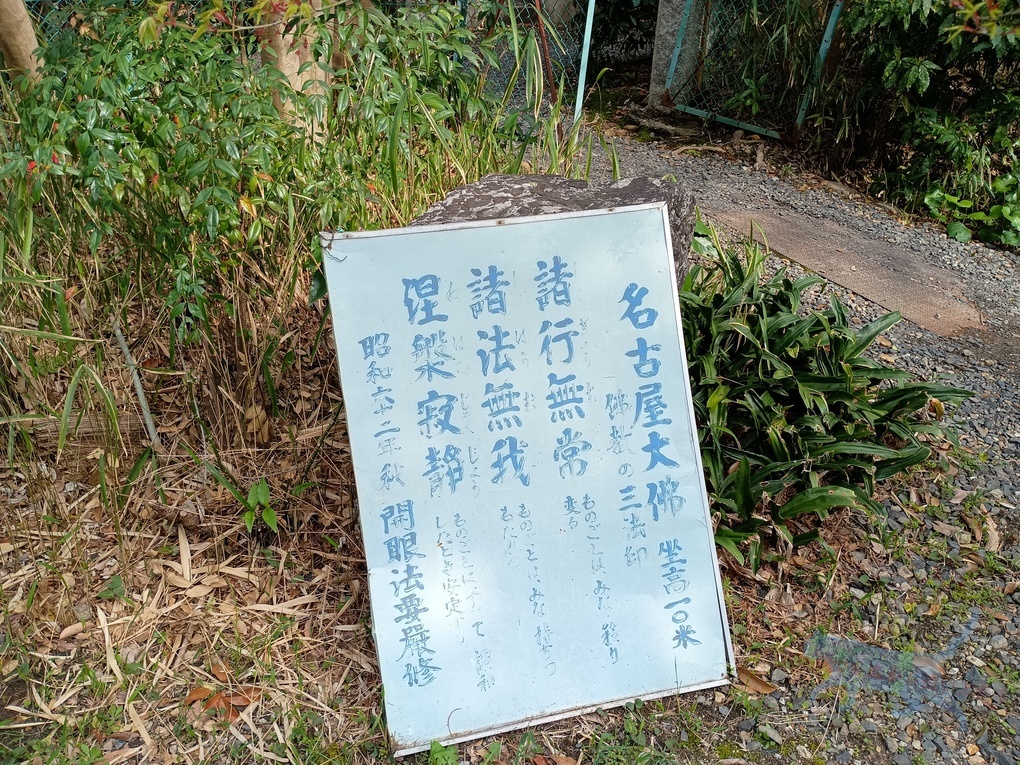 名古屋大佛 坐高一〇米
佛教の三法印
諸行無常 ものごとはみな移り
変る
諸法無我 ものごとはみな持ちつ
もたれつ
涅槃寂静 ものごとはすべて調和
昭和六十二年秋 開眼法要厳修